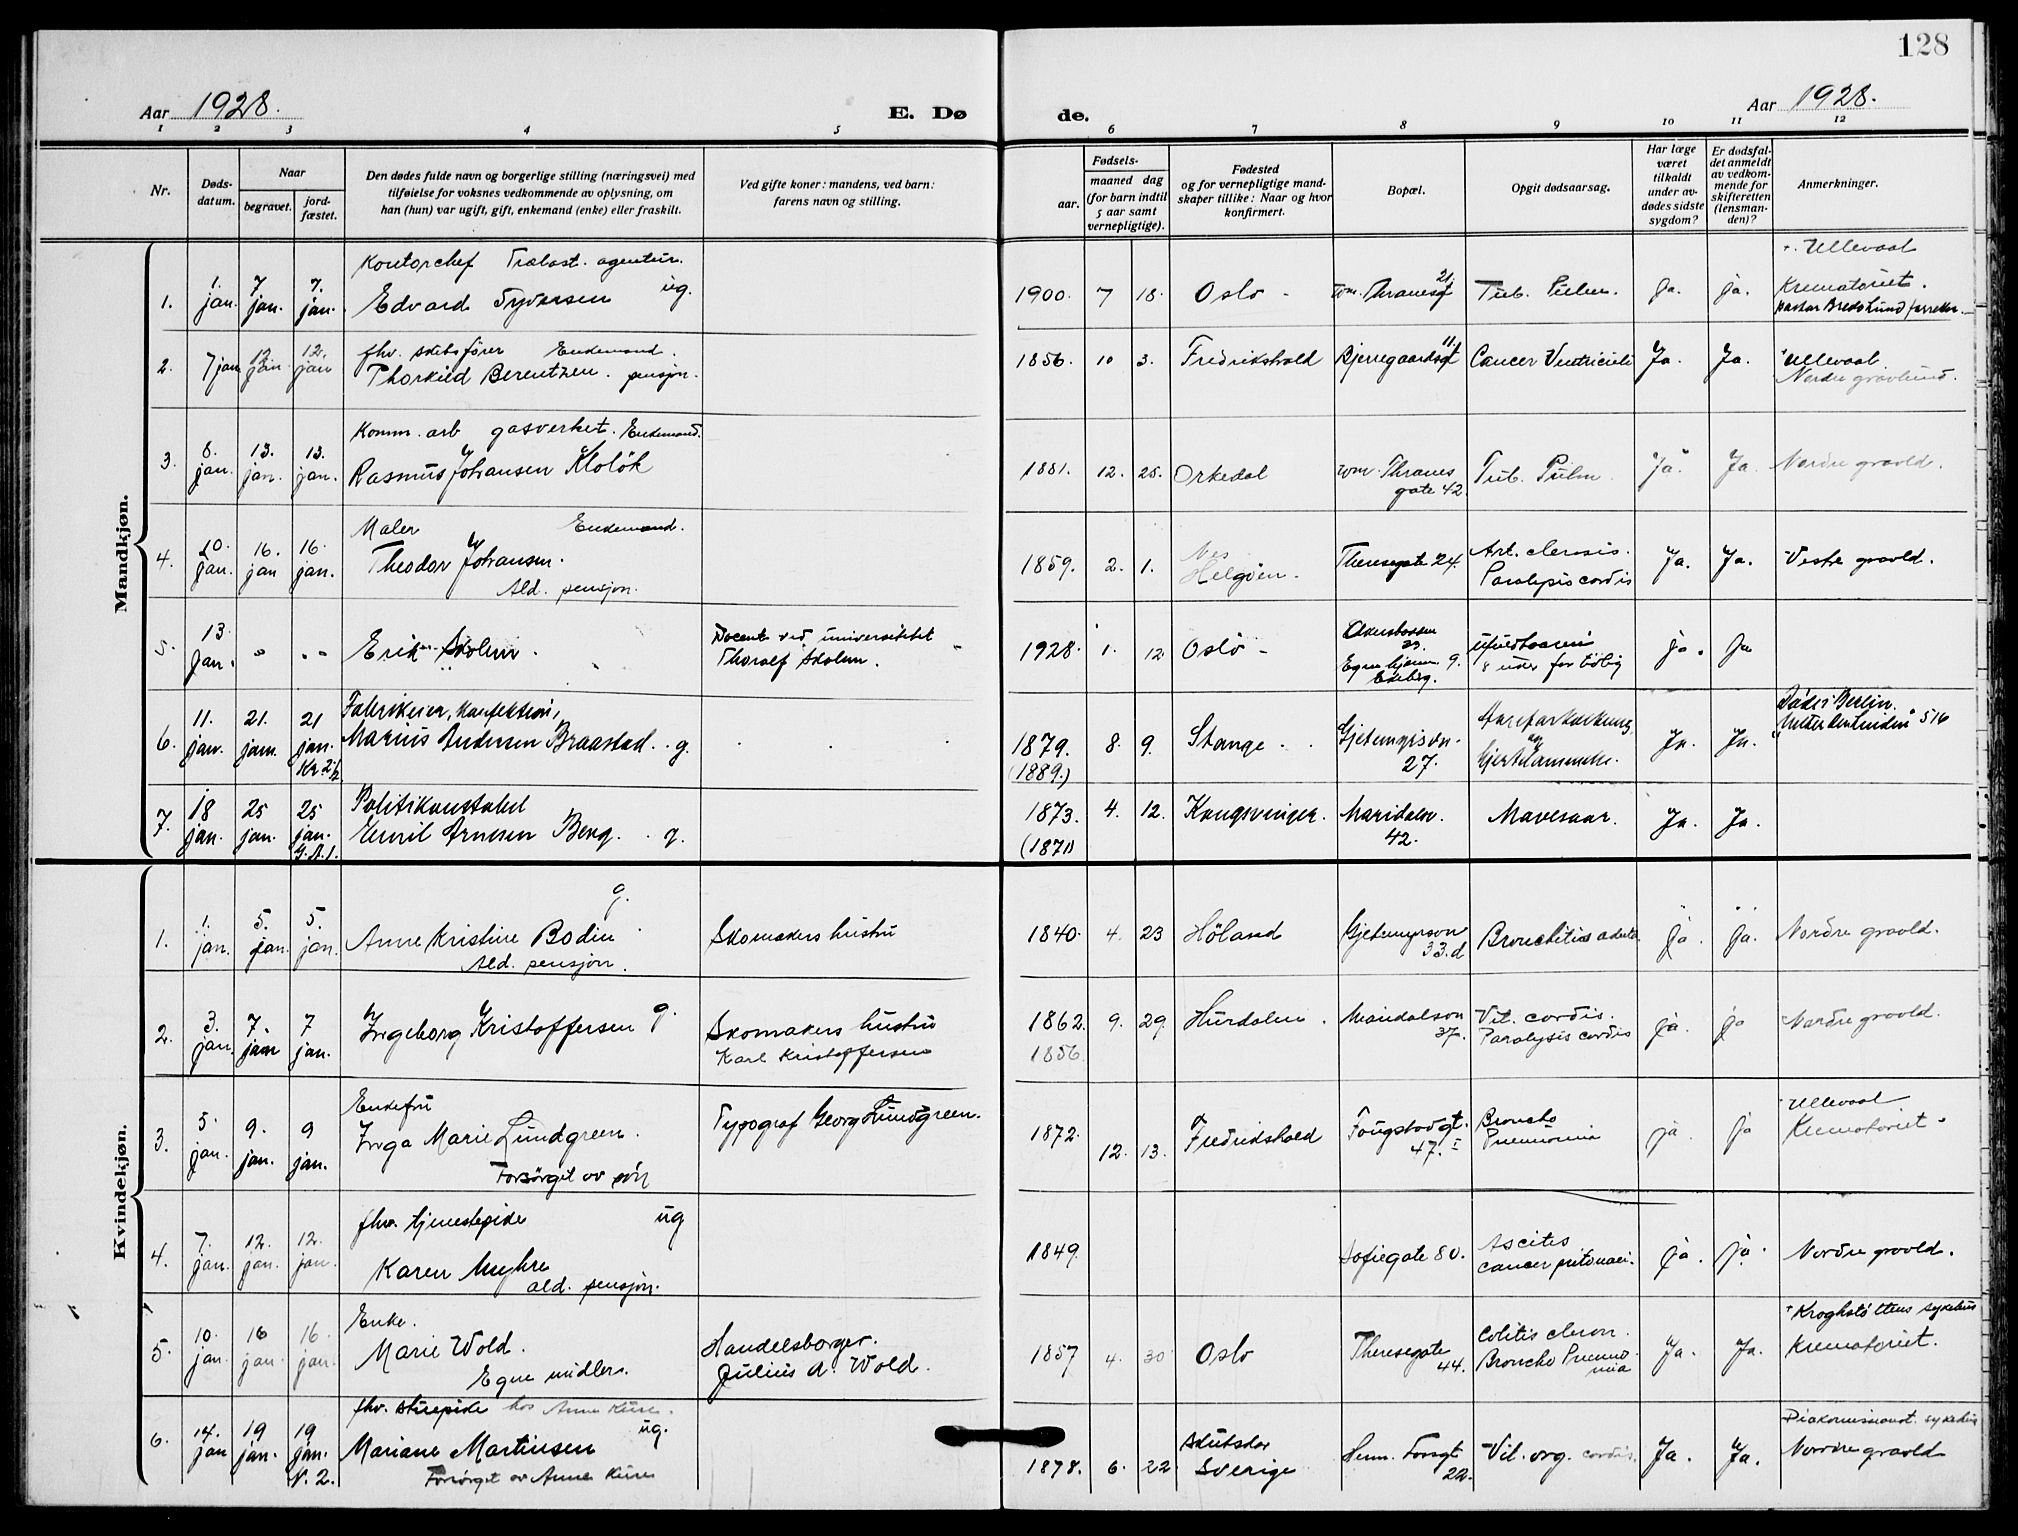 128
Aar 1928. E. Dø de. Aar 1928.
1 2 3 4 5 6 7 8 9 10 11 12
Nr.
Døds-
datum.
Naar
begravet.
jord-
fæstet.
Den dødes fulde navn og borgerlige stilling (næringsvei) med
tilføielse for voksnes vedkommende av oplysning, om
han (hun) var ugift, gift, enkemand (enke) eller fraskilt.
Ved gifte koner: mandens, ved barn:
farens navn og stilling.
Fødsels-
aar.
maaned dag
(for barn indtil
5 aar samt
vernepligtige).
Fødested
og for vernepligtige mand-
skaper tillike: Naar og hvor
konfirmert.
Bopæl.
Opgit dødsaarsag.
Har læge
været
tilkaldt
under av-
dødes sidste
sygdom?
Er dødsfal-
det anmeldt
av vedkom-
mende for
skifteretten
(lensman-
den)?
Anmerkninger.
Mandkjøn.
Kontorchef Trælast. agentur.
1. 1. jan. 7. jan. 7. jan. Edvard Syversen ug. 1900. 7 18. Oslo Thranesgt 21. Tub. Pulm. Ja. ja. Ullevaal
Krematoriet.
fhv. skibsfører Enkemand.
2. 7 jan 12. jan 12. jan Thorkild Berentzen. pensjon. 1856. 10 3. Fredrikshald Bjerregaardsgt 11 Cancer Ventriculi Ja. Ja. Ullevaal
Nordre gravlund.
Komm. arb gasverket. Enkemand.
3. 8. jan. 13. jan. 13. jan. Rasmus Johansen Kloløk 1881. 12. 25. Orkedal Thranes
gate 42 Tub. Pulm. Ja Ja. Nordre gravld.
Maler Enkemand.
4. 10. jan. 16. jan 16. jan. Theodor Johansen. 1859. 2. 1. Nes
Helgøen. Theresegate 24. Art. clerosis.
Paralysis cordis Ja. Ja. Vestre gravld.
Ald. pensjon.
5. 13. jan. " " Erik Skolem. Docent ved universitetet
Thoralf Skolem. 1928. 1. 12 Oslo Egne hjem 9.
Ekeberg. for tidlig ja. ja
Fabrikeier, konfektion,
6. 11. jan. 21. jan. 21 jan. Marius Andersen Braastad. g. 1879. 8. 9. Stange. Gjetemyrsvn.
27. Aareforkalkning
og
Hjertelammelse. Ja. Ja. Død i Berlin.
"Unter den Linden" 516
(1889.)
Politikonstabel
7. 18 jan. 25 jan. 25 jan. Emil Arnesen Berg. g. 1873. 4. 12. Kongsvinger. Maridalsv.
42. Mavesaar. Ja. Ja.
(1871)
Kvindekjøn.
1. 1. jan. 5. jan. 5. jan. Anne Kristine Bodin g. Skomakers hustru 1840. 4. 23 Høland Gjetemyrsvn
33.d Bronchitis acuta. Ja. Ja. Nordre gravld.
Ald. pensjon.
2. 3. jan. 7. jan 7 jan. Ingeborg Kristoffersen g. Skomakers hustru
Karl Kristoffersen 1862. 9. 29. Hurdalen. Maridalsvn
37. Vit. cordis.
Paralysis cordis ja. ja Nordre gravld.
1856.
Enkefru
3. 5. jan. 9. jan. 9 jan. Inga Marie Lundgreen. Typograf Georg Lundgreen. 1872. 12. 13. Fredrikshald Fougstadgt.
47. I Broncho
Pneumonia ja. ja Ullevaal
Krematoriet.
Forsørget av søn
fhv. tjenestepike ug
4. 7. jan. 12. jan. 12. jan. Karen Myhre 1849. Sofiegate 80. Ascites
cancer peritonaei. ja. ja. Nordre gravld.
ald. pensjon.
Enke.
5. 10. jan. 16 jan. 16. jan. Marie Wold. Handelsborger.
Julius A. Wold. 1857 4. 30 Oslo Theresegate
44. Colitis chron.
Broncho Pneumo
nia Ja. Ja. Kroghstøttens sykehus
Krematoriet.
Egne midler.
fhv. sypike hos Anne Kure.
6. 14. jan 19 jan. 19 jan. Mariane Martinsen ug. 1878. 6. 22
Sverige Herm. Fossgt
22. Vit. org. cordis. Ja. Ja. Diakonissehust. sykehus
Nordre gravld
N. 2. Forsørget av Anne Kure